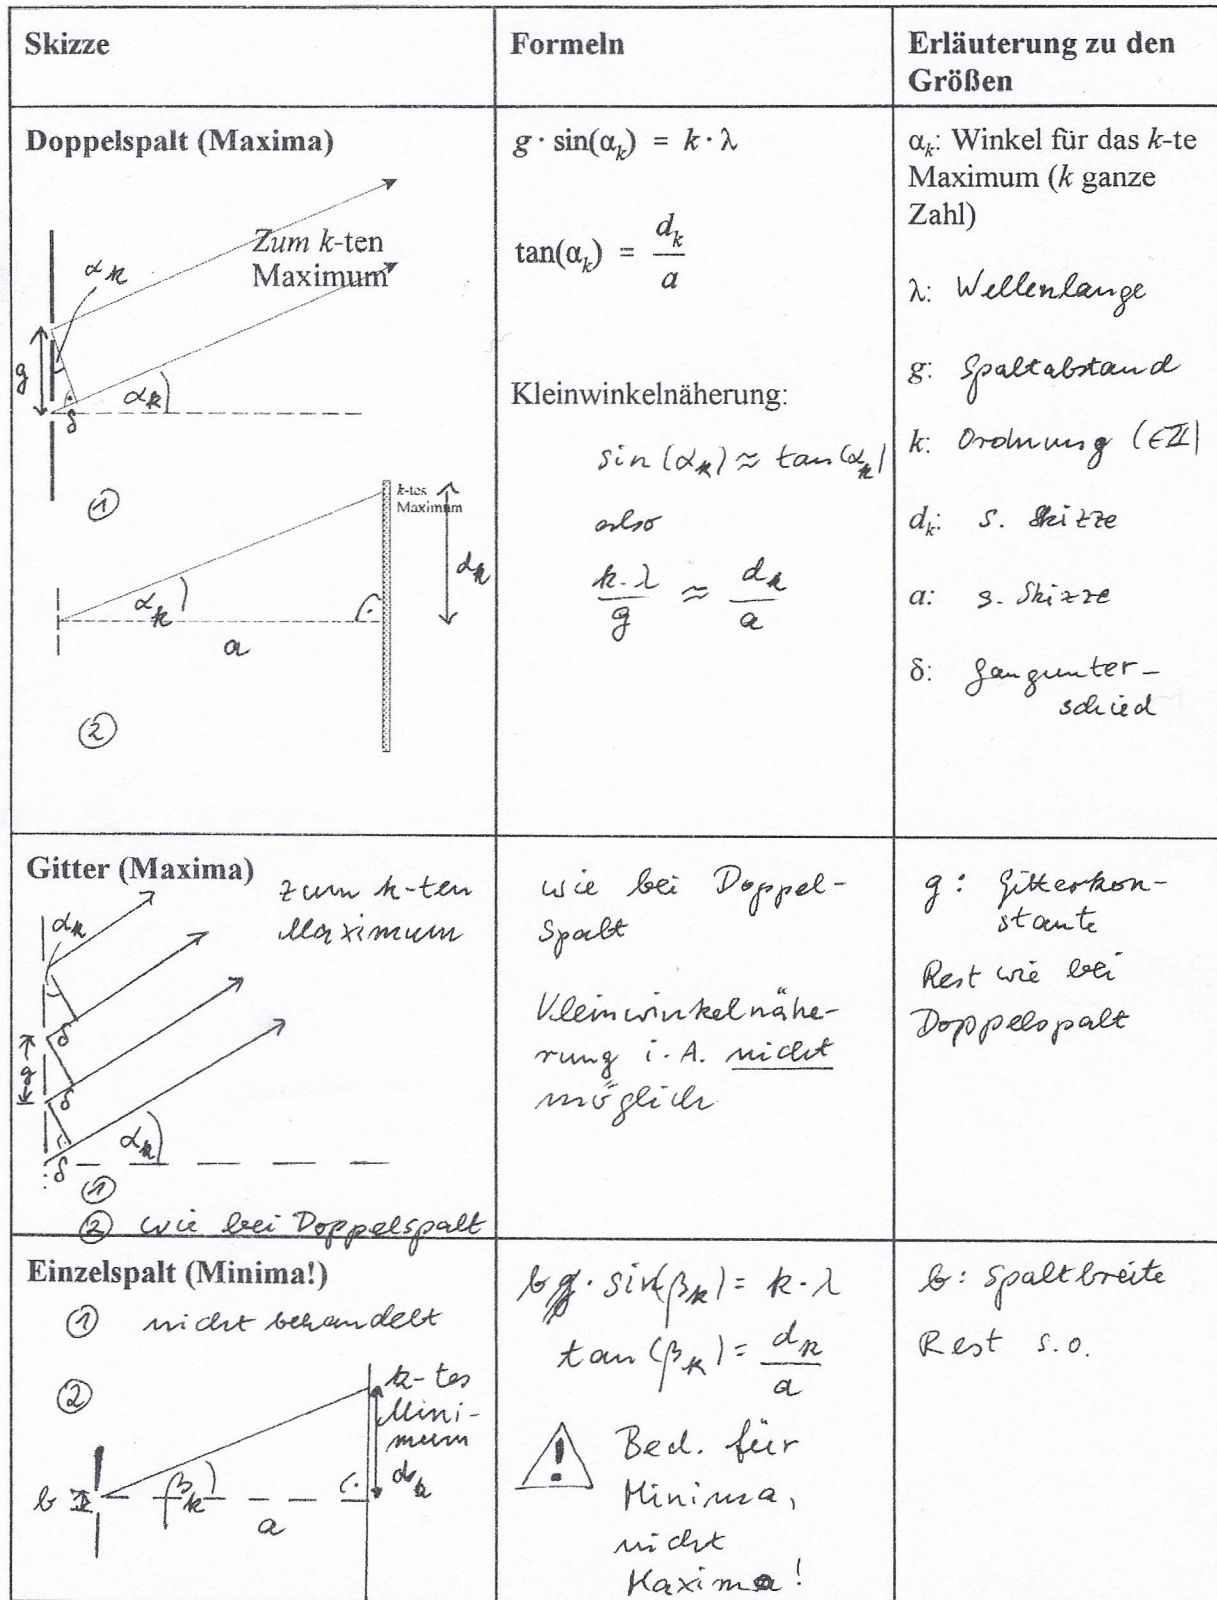 Skizze
Formeln
Erläuterung zu den
Größen
Doppelspalt (Maxima)
Zum k-ten
Maximum
α_k
g
δ
α_k
①
k-tes
Maximum
d_k
α_k
a
②
g · sin(α_k) = k · λ
tan(α_k) = d_k / a
Kleinwinkelnäherung:
sin(α_k) ≈ tan(α_k)
also
k·λ / g ≈ d_k / a
α_k: Winkel für das k-te
Maximum (k ganze
Zahl)
λ: Wellenlänge
g: Spaltabstand
k: Ordnung (∈ℤ)
d_k: s. Skizze
a: s. Skizze
δ: Gangunter-
schied
Gitter (Maxima)
zum k-ten
Maximum
α_k
δ
g
δ
α_k
δ
①
② wie bei Doppelspalt
wie bei Doppel-
spalt
Kleinwinkelnähe-
rung i. A. nicht
möglich
g: Gitterkon-
stante
Rest wie bei
Doppelspalt
Einzelspalt (Minima!)
① nicht behandelt
②
k-tes
Mini-
mum
d_k
b
β_k
a
b · sin(β_k) = k · λ
tan(β_k) = d_k / a
! Bed. für
Minima,
nicht
Maxima!
b: Spaltbreite
Rest s.o.